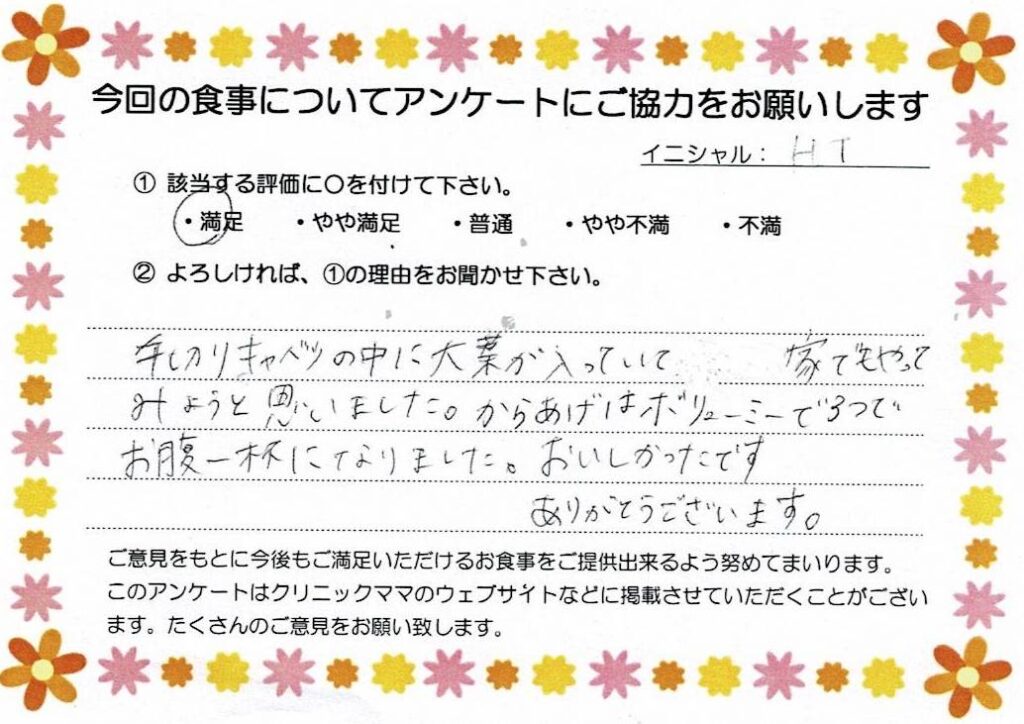 今回の食事についてアンケートにご協力をお願いします
イニシャル： HT
① 該当する評価に〇を付けて下さい。
・満足 ・やや満足 ・普通 ・やや不満 ・不満
② よろしければ、①の理由をお聞かせ下さい。
千切りキャベツの中に大葉が入っていて 家でもやって
みようと思いました。からあげはボリューミーで3つで
お腹一杯になりました。おいしかったです
ありがとうございます。
ご意見をもとに今後もご満足いただけるお食事をご提供出来るよう努めてまいります。
このアンケートはクリニックママのウェブサイトなどに掲載させていただくことがござい
ます。たくさんのご意見をお願い致します。